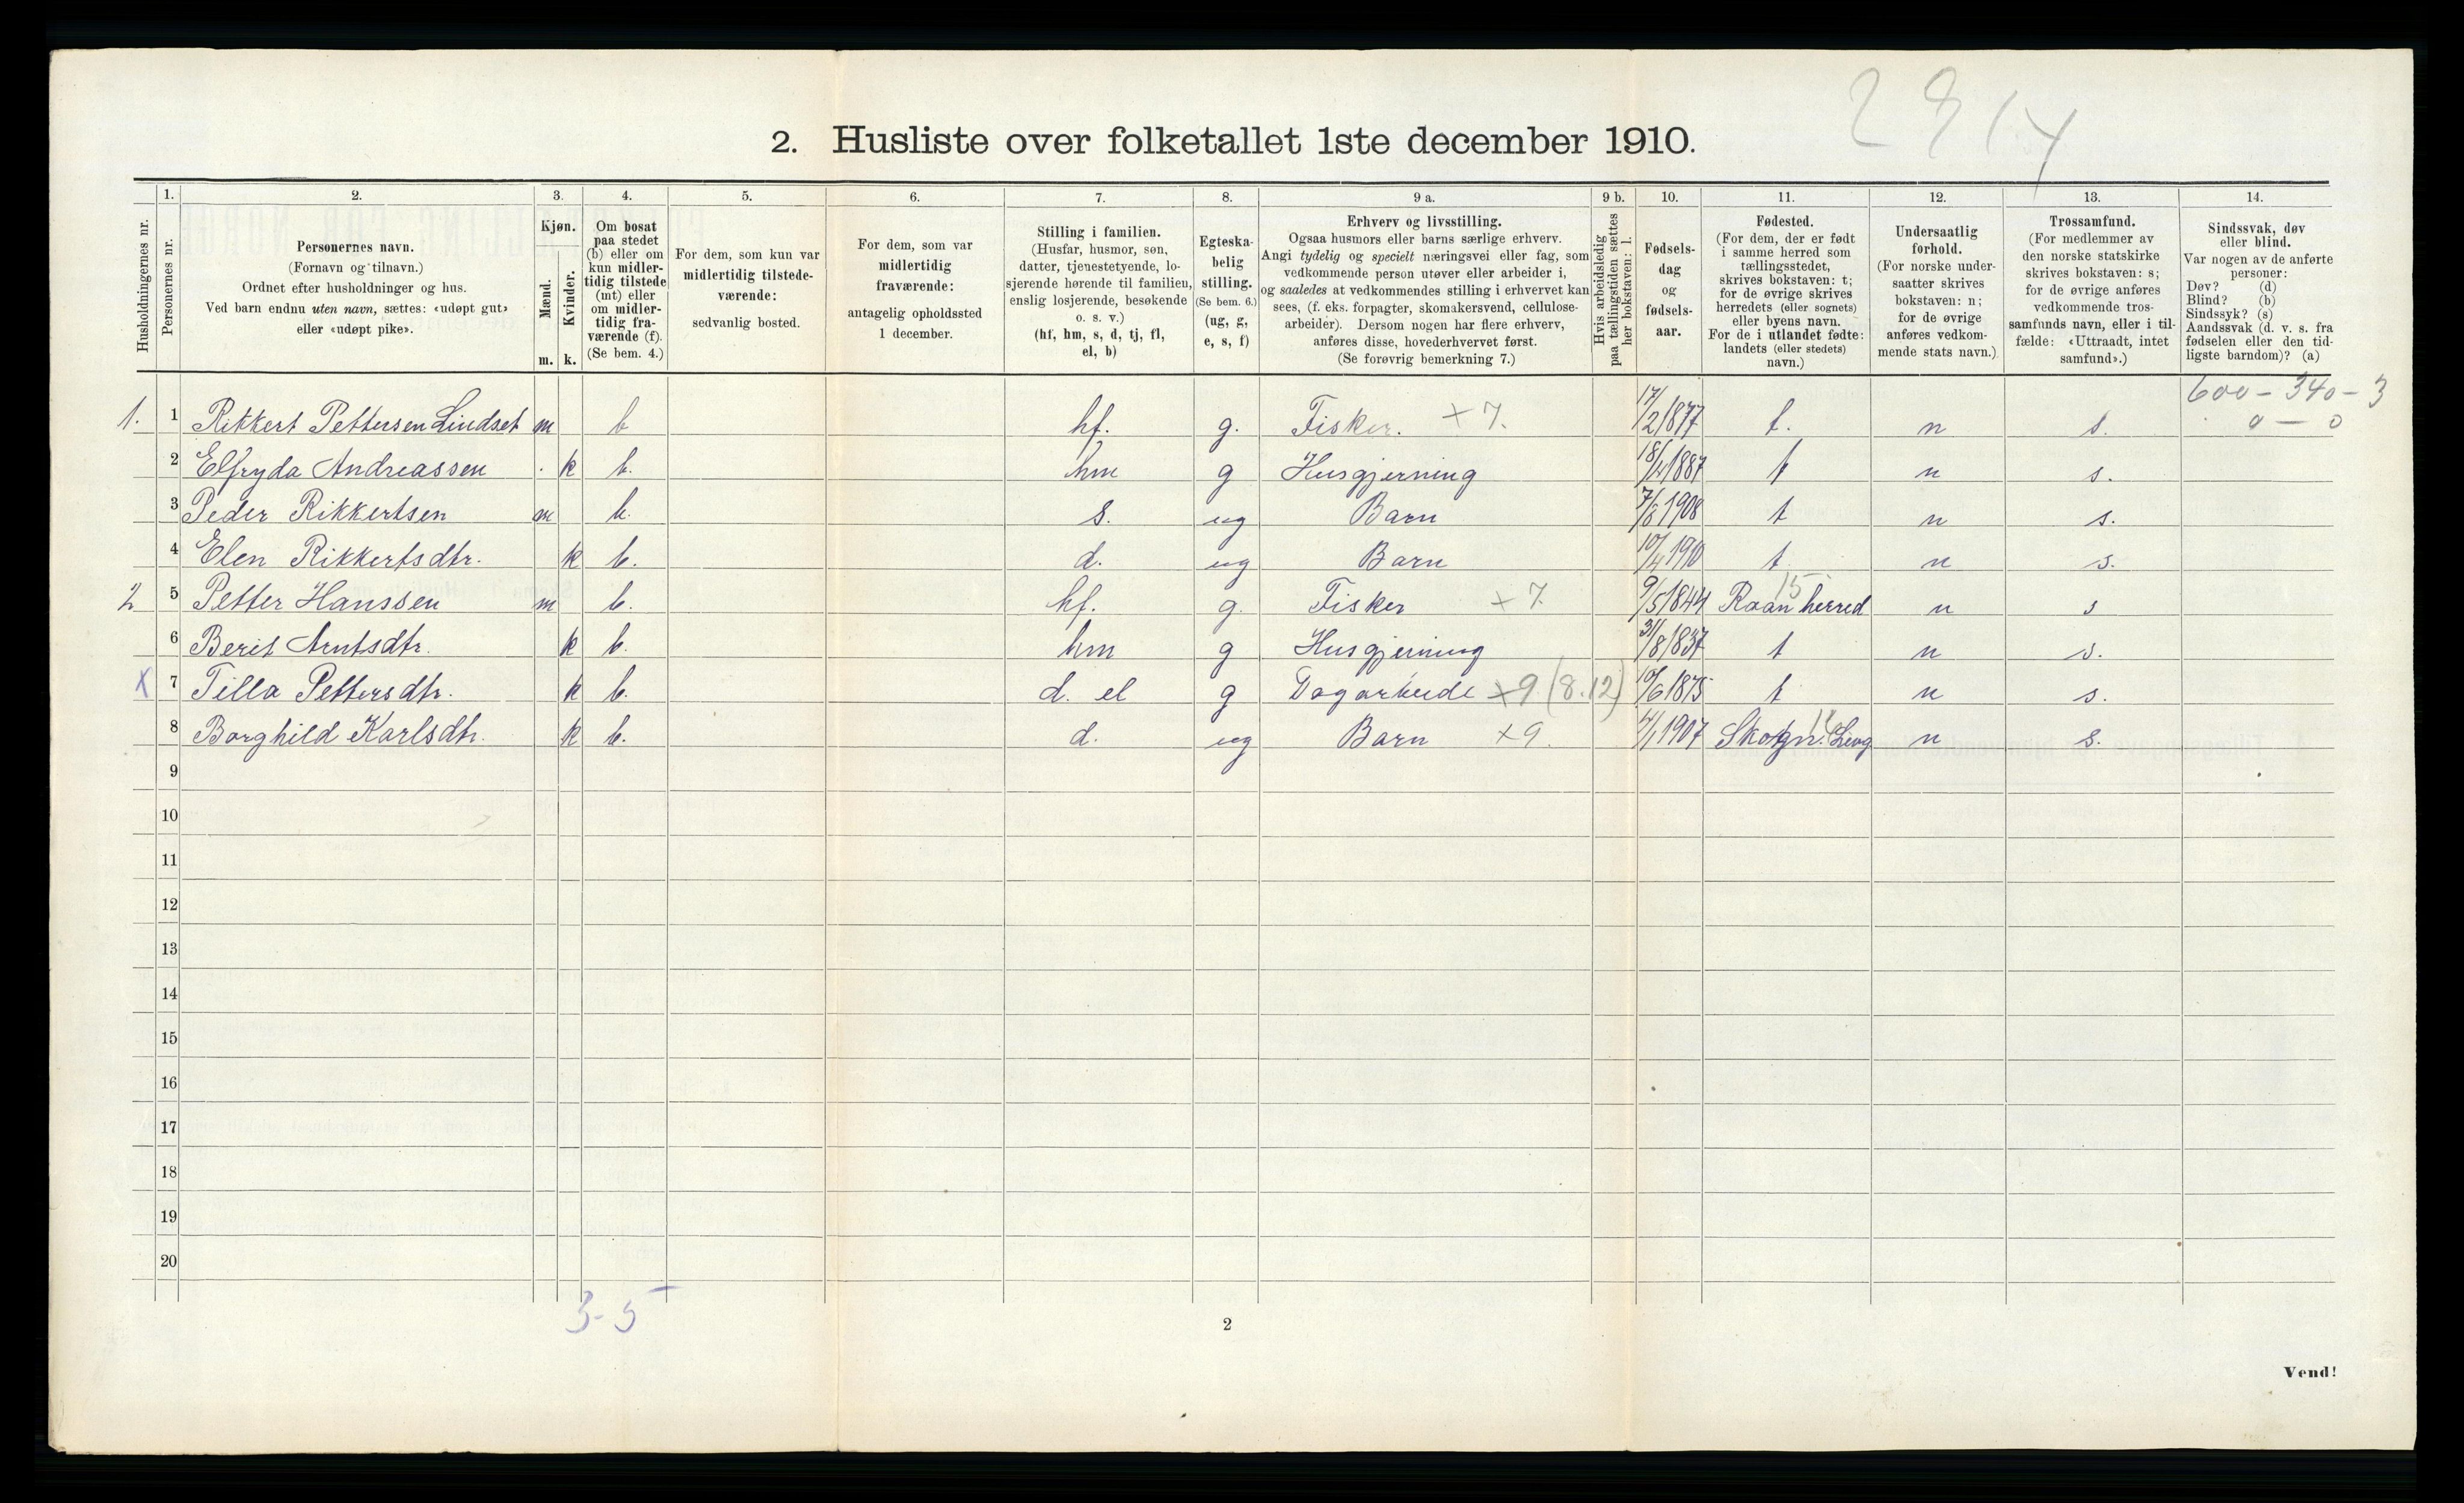 2814
2. Husliste over folketallet 1ste december 1910.
Husholdningernes nr.
1. Personernes nr.
2. Personernes navn.
(Fornavn og tilnavn.)
Ordnet efter husholdninger og hus.
Ved barn endnu uten navn, sættes: «udøpt gut»
eller «udøpt pike».
3. Kjøn.
Mænd. m.
Kvinder. k.
4. Om bosat
paa stedet
(b) eller om
kun midler-
tidig tilstede
(mt) eller
om midler-
tidig fra-
værende (f).
(Se bem. 4.)
5. For dem, som kun var
midlertidig tilstede-
værende:
sedvanlig bosted.
6. For dem, som var
midlertidig
fraværende:
antagelig opholdssted
1 december.
7. Stilling i familien.
(Husfar, husmor, søn,
datter, tjenestetyende, lo-
sjerende hørende til familien,
enslig losjerende, besøkende
o. s. v.)
(hf, hm, s, d, tj, fl,
el, b)
8. Egteska-
belig
stilling.
(Se bem. 6.)
(ug, g,
e, s, f)
9 a. Erhverv og livsstilling.
Ogsaa husmors eller barns særlige erhverv.
Angi tydelig og specielt næringsvei eller fag, som
vedkommende person utøver eller arbeider i,
og saaledes at vedkommendes stilling i erhvervet kan
sees, (f. eks. forpagter, skomakersvend, cellulose-
arbeider). Dersom nogen har flere erhverv,
anføres disse, hovederhvervet først.
(Se forøvrig bemerkning 7.)
9 b. Hvis arbeidsledig
paa tællingstiden sættes
her bokstaven: l.
10. Fødsels-
dag
og
fødsels-
aar.
11. Fødested.
(For dem, der er født
i samme herred som
tællingsstedet,
skrives bokstaven: t;
for de øvrige skrives
herredets (eller sognets)
eller byens navn.
For de i utlandet fødte:
landets (eller stedets)
navn.)
12. Undersaatlig
forhold.
(For norske under-
saatter skrives
bokstaven: n;
for de øvrige
anføres vedkom-
mende stats navn.)
13. Trossamfund.
(For medlemmer av
den norske statskirke
skrives bokstaven: s;
for de øvrige anføres
vedkommende tros-
samfunds navn, eller i til-
fælde: «Uttraadt, intet
samfund».)
14. Sindssvak, døv
eller blind.
Var nogen av de anførte
personer:
Døv? (d)
Blind? (b)
Sindssyk? (s)
Aandssvak (d. v. s. fra
fødselen eller den tid-
ligste barndom)? (a)
600 - 340 - 3
0 - 0
1. 1 Rikkert Pettersen Lindset m b hf. g. Fisker. +7. 17/2 1877 t. n s.
2 Elfryda Andreassen k b. hm g Husgjerning 18/4 1887 t n s.
3 Peder Rikkertsen m b. s. ug Barn 7/8 1908 t n s.
4 Elen Rikkertsdtr. k b. d. ug Barn 10/4 1910 t n s.
2 5 Petter Hanssen m b. hf. g. Fisker +7. 9/5 1844 Roan herred 15 n s
6 Berit Arntsdtr. k b. hm g Husgjerning 31/8 1837 t n s.
X 7 Tilla Pettersdtr. k b. d. el g Dagarbeide +9 (8.12) 10/6 1875 t n s.
8 Borghild Karlsdtr. k b. d. ug Barn +9. 4/1 1907 n s.
9
10
11
12
13
14
15
16
17
18
19
20
3-5
2
Vend!